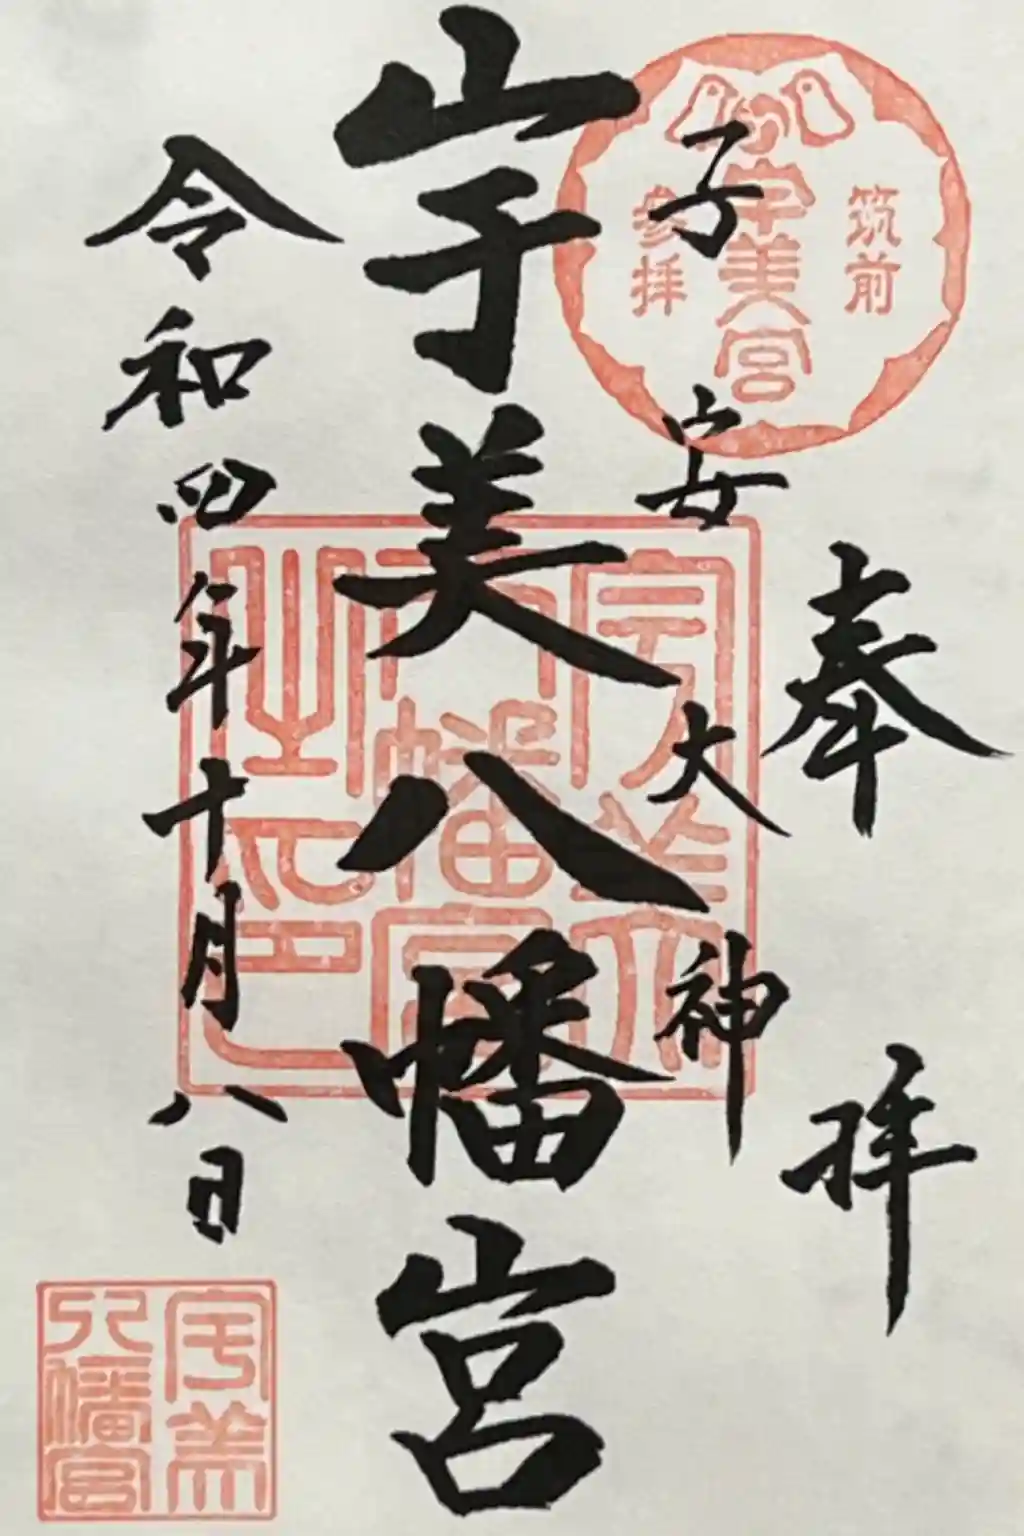 奉拝
子安大神
宇美八幡宮
令和四年十月八日
筑前
宇美宮
参拝
宇美八幡宮之印
宇美八幡宮